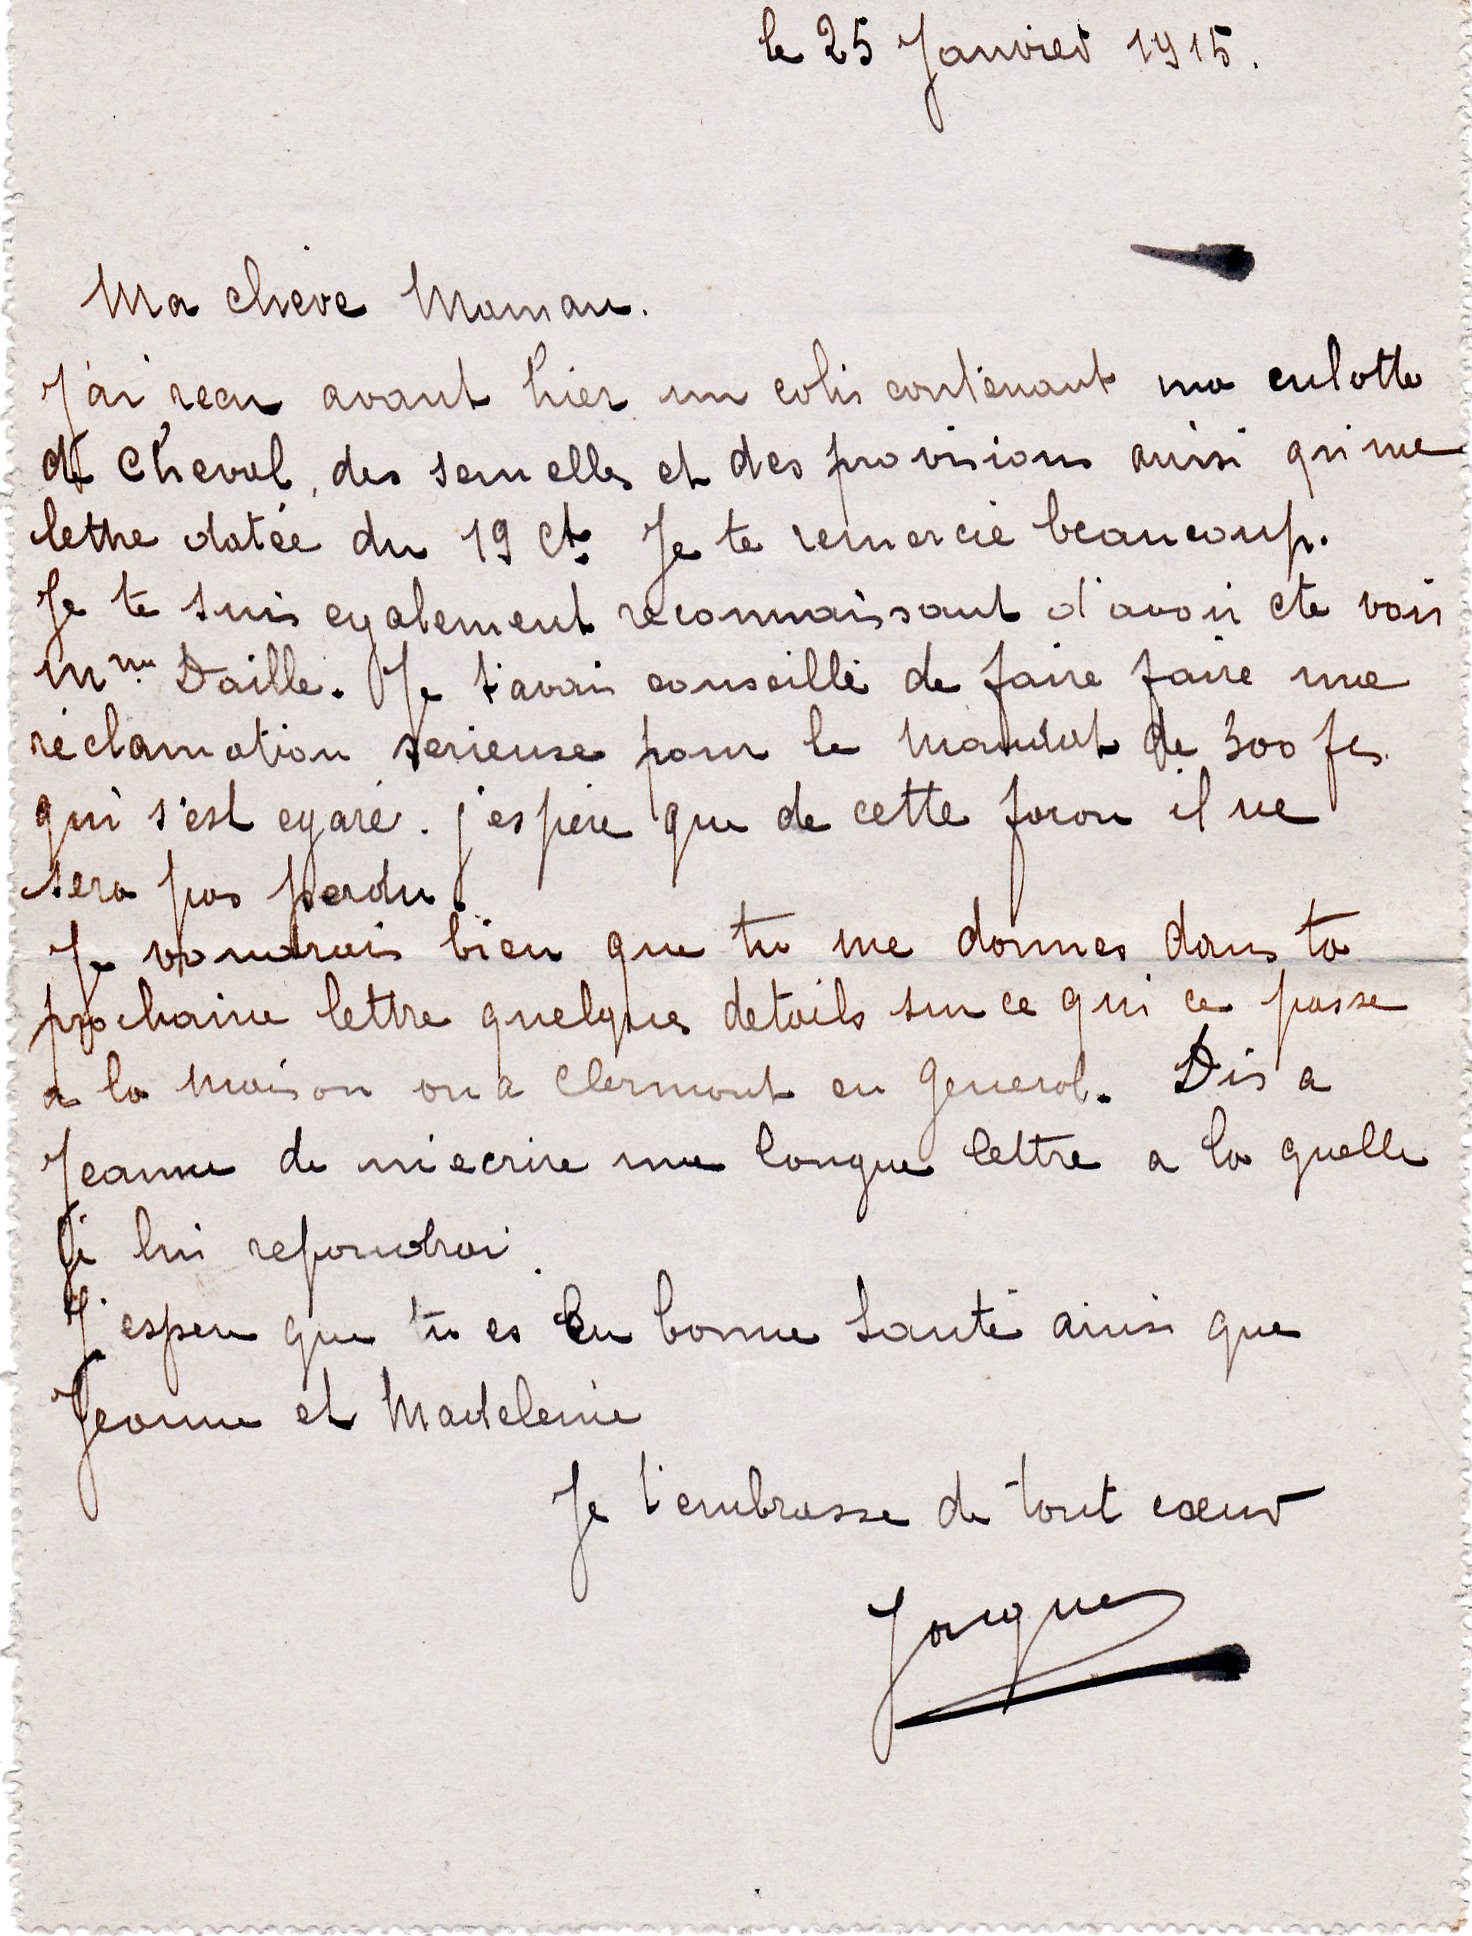 le 25 Janvier 1915.
Ma chère Maman.
J'ai recu avant hier un colis contenant ma culotte
de cheval, des semelles et des provisions ainsi qu'une
lettre datée du 19 ct. Je te remercie beaucoup.
Je te suis egalement reconnaissant d'avoir ete voir
Mme Daille. Je t'avais conseillé de faire faire une
réclamation serieuse pour le mandat de 300 fcs
qui s'est egaré. j'espère que de cette facon il ne
sera pas perdu.
Je voudrais bien que tu me donnes dans ta
prochaine lettre quelques details sur ce qui ce passe
a la maison ou a Clermont en general. Dis a
Jeanne de m'ecrire une longue lettre a la quelle
je lui repondrai.
J'espere que tu es en bonne santé ainsi que
Jeanne et Madeleine
Je t'embrasse de tout cœur
Jacques